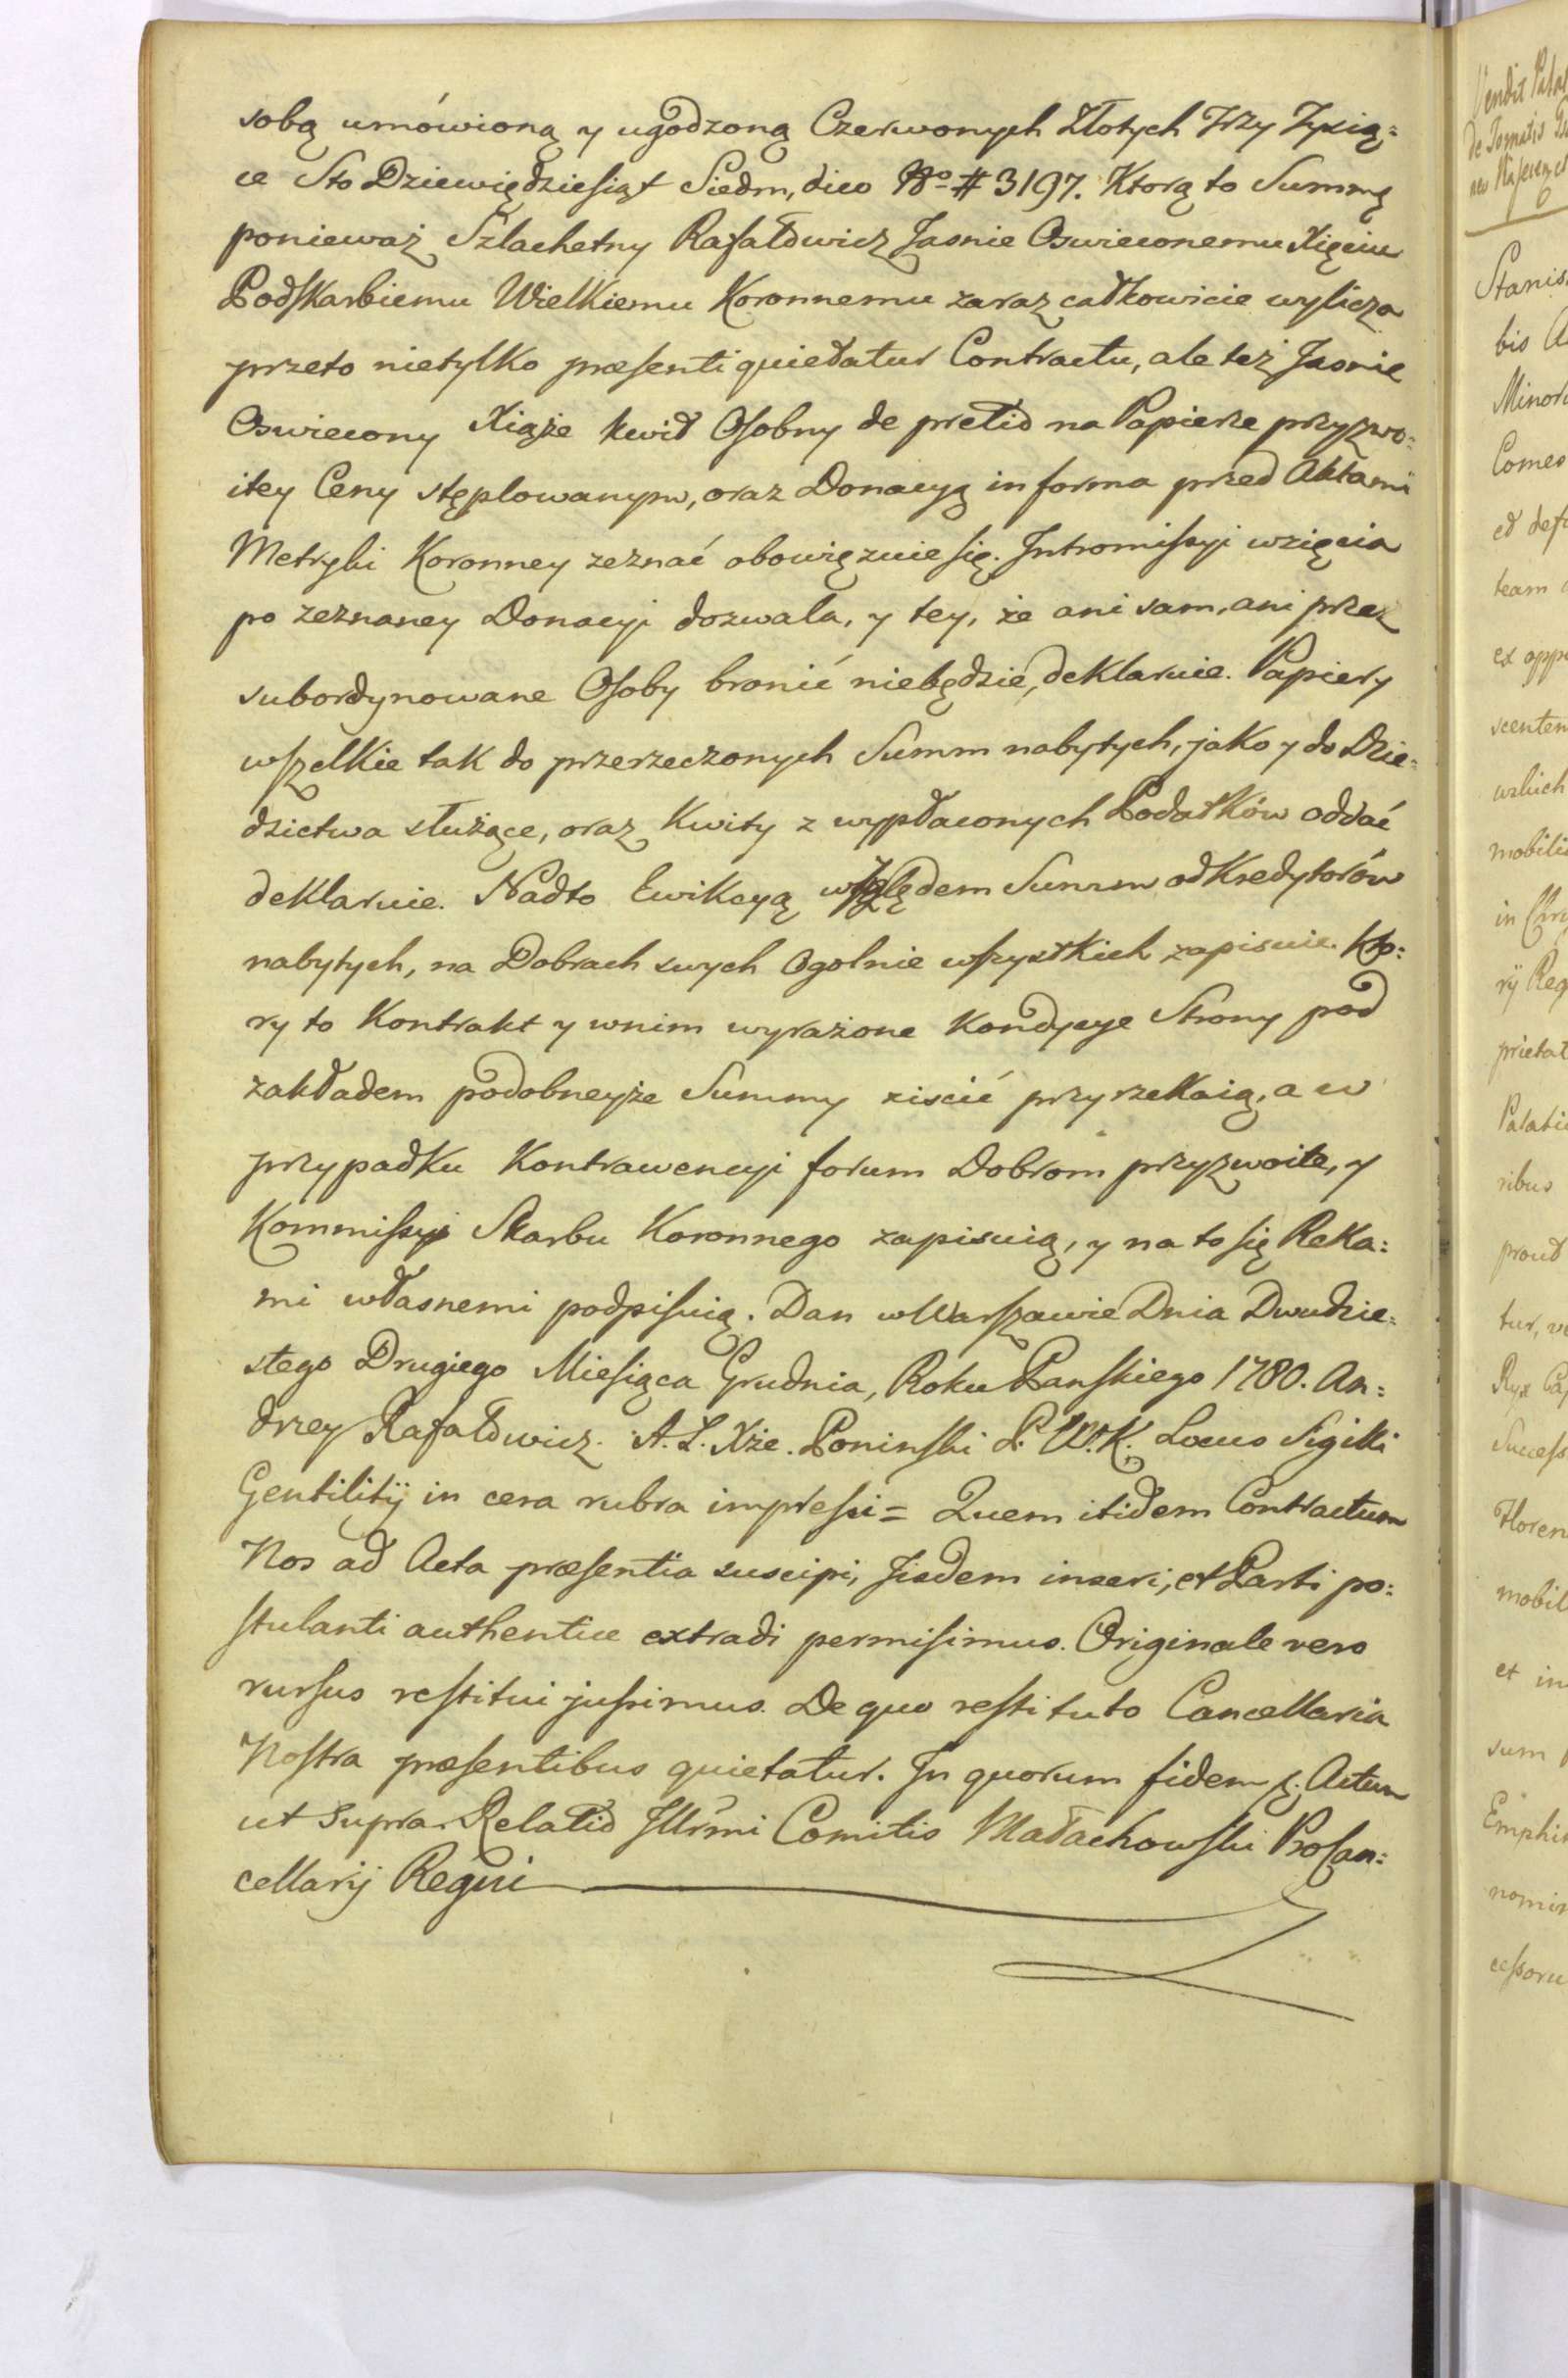 sobą umówioną y ugodzoną Czerwonych Złotych Trzy Tysią=
ce Sto Dziewiędziesiąt Siedm, dico No # 3197. Ktorą to Summę
ponieważ Szlachetny Rafałowicz Jasnie Oswieconemu Xięciu
Podskarbiemu Wielkiemu Koronnemu zaraz całkowicie wylicza
przeto nietylko præsenti quietatur Contractu, ale też Jasnie
Oswiecony Xiąże kwit Osobny de pretio na Papierze przyzwo=
itey Ceny stęplowanym, oraz Donacyą in forma przed Aktami
Metryki Koronney zeznać obowięzuie się. Intromissyi wzięcia
po zeznaney Donacyi dozwala, y tey, że ani sam, ani przez
subordynowane Osoby bronić niebędzie, deklaruie. Papiery
wszelkie tak do przerzeczonych Summ nabytych, jako y do Dzie=
dzictwa służące, oraz Kwity z wypłaconych Podatków oddać
deklaruie. Nadto Ewikcyą względem Summ od Kredytorów
nabytych, na Dobrach swych Ogolnie wszystkich zapisuie. Kto=
ry to Kontrakt y wnim wyrażone Kondycye Strony pod
zakładem podobneyże Summy ziscić przyrzekaią, a w
przypadku Kontrawencyi forum Dobrom przyzwoite, y
Kommissyi Skarbu Koronnego zapisuią, y na to się Reka=
mi własnemi podpisuią. Dan w Warszawie Dnia Dwudzie=
stego Drugiego Miesiąca Grudnia, Roku Panskiego 1780. An=
drzey Rafałowicz. A. L. Xże. Poninski P. W. K. Locus Sigilli
Gentilitij in cera rubra impressi = Quem itidem Contractum
Nos ad Acta præsentia suscipi, Jisdem inseri, et Parti po=
stulanti authentice extradi permisimus. Originale vero
rursus restitui jussimus. De quo restituto Cancellaria
Nostra præsentibus quietatur. In quorum fidem p. Actum
ut supra. Relatio Jllrmi Comitis Małachowski ProCan=
cellarij Regni
Stanis
bis
Minor
Comes
team
ex opp
scenten
mobili
in Chr
rij Reg
prietat
Palati
ribus
prout
tur, ve
Success
Floren
mobil
et in
sum
Emphi
nomin
cessoru